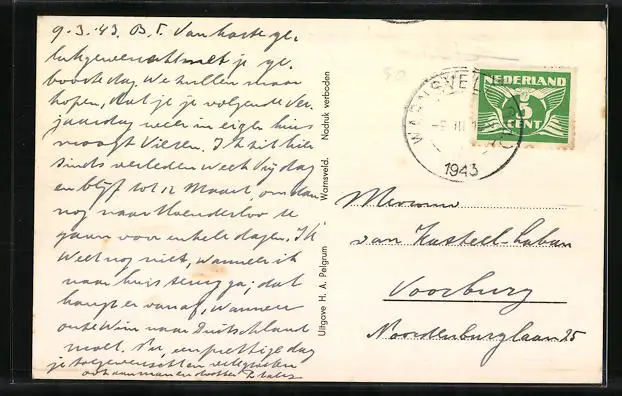 9-3-'43. B.T. Van harte ge-
lukgewenscht met je ge-
boortedag. We zullen maar
hopen, dat je je volgende ver-
jaardag weer in eigen huis
moogt vieren. Ik zit hier
sinds verleden week Vrijdag
en blijf tot 12 Maart, om dan
nog naar Hoenderloo te
gaan voor enkele dagen. Ik
weet nog niet, wanneer ik
naar huis terug ga; dat
hangt er vanaf, wanneer
onze Wim naar Duitschland
moet. Nu, een prettige dag
je toegewenscht en veel groeten
ook aan man en dochter
Uitgave H. A. Pelgrum Warnsveld. Nadruk verboden
WARNSVELD
1943
NEDERLAND
5
CENT
Mevrouw
van Kasteel-Laban
Voorburg
Noordenburglaan 25